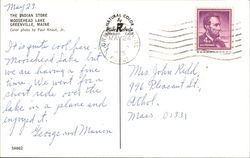 May 23
THE INDIAN STORE
MOOSEHEAD LAKE
GREENVILLE, MAINE
Color photo by Paul Knaut, Jr.
It is quite cool here.
Moosehead Lake but
we are having a fine
time. We went for a
short ride over the
lake in a plane and
enjoyed it.
George and Marion
54662
NATURAL COLOR
Mrs John Redd
996 Pleasant St.
Athol.
Mass. 01331